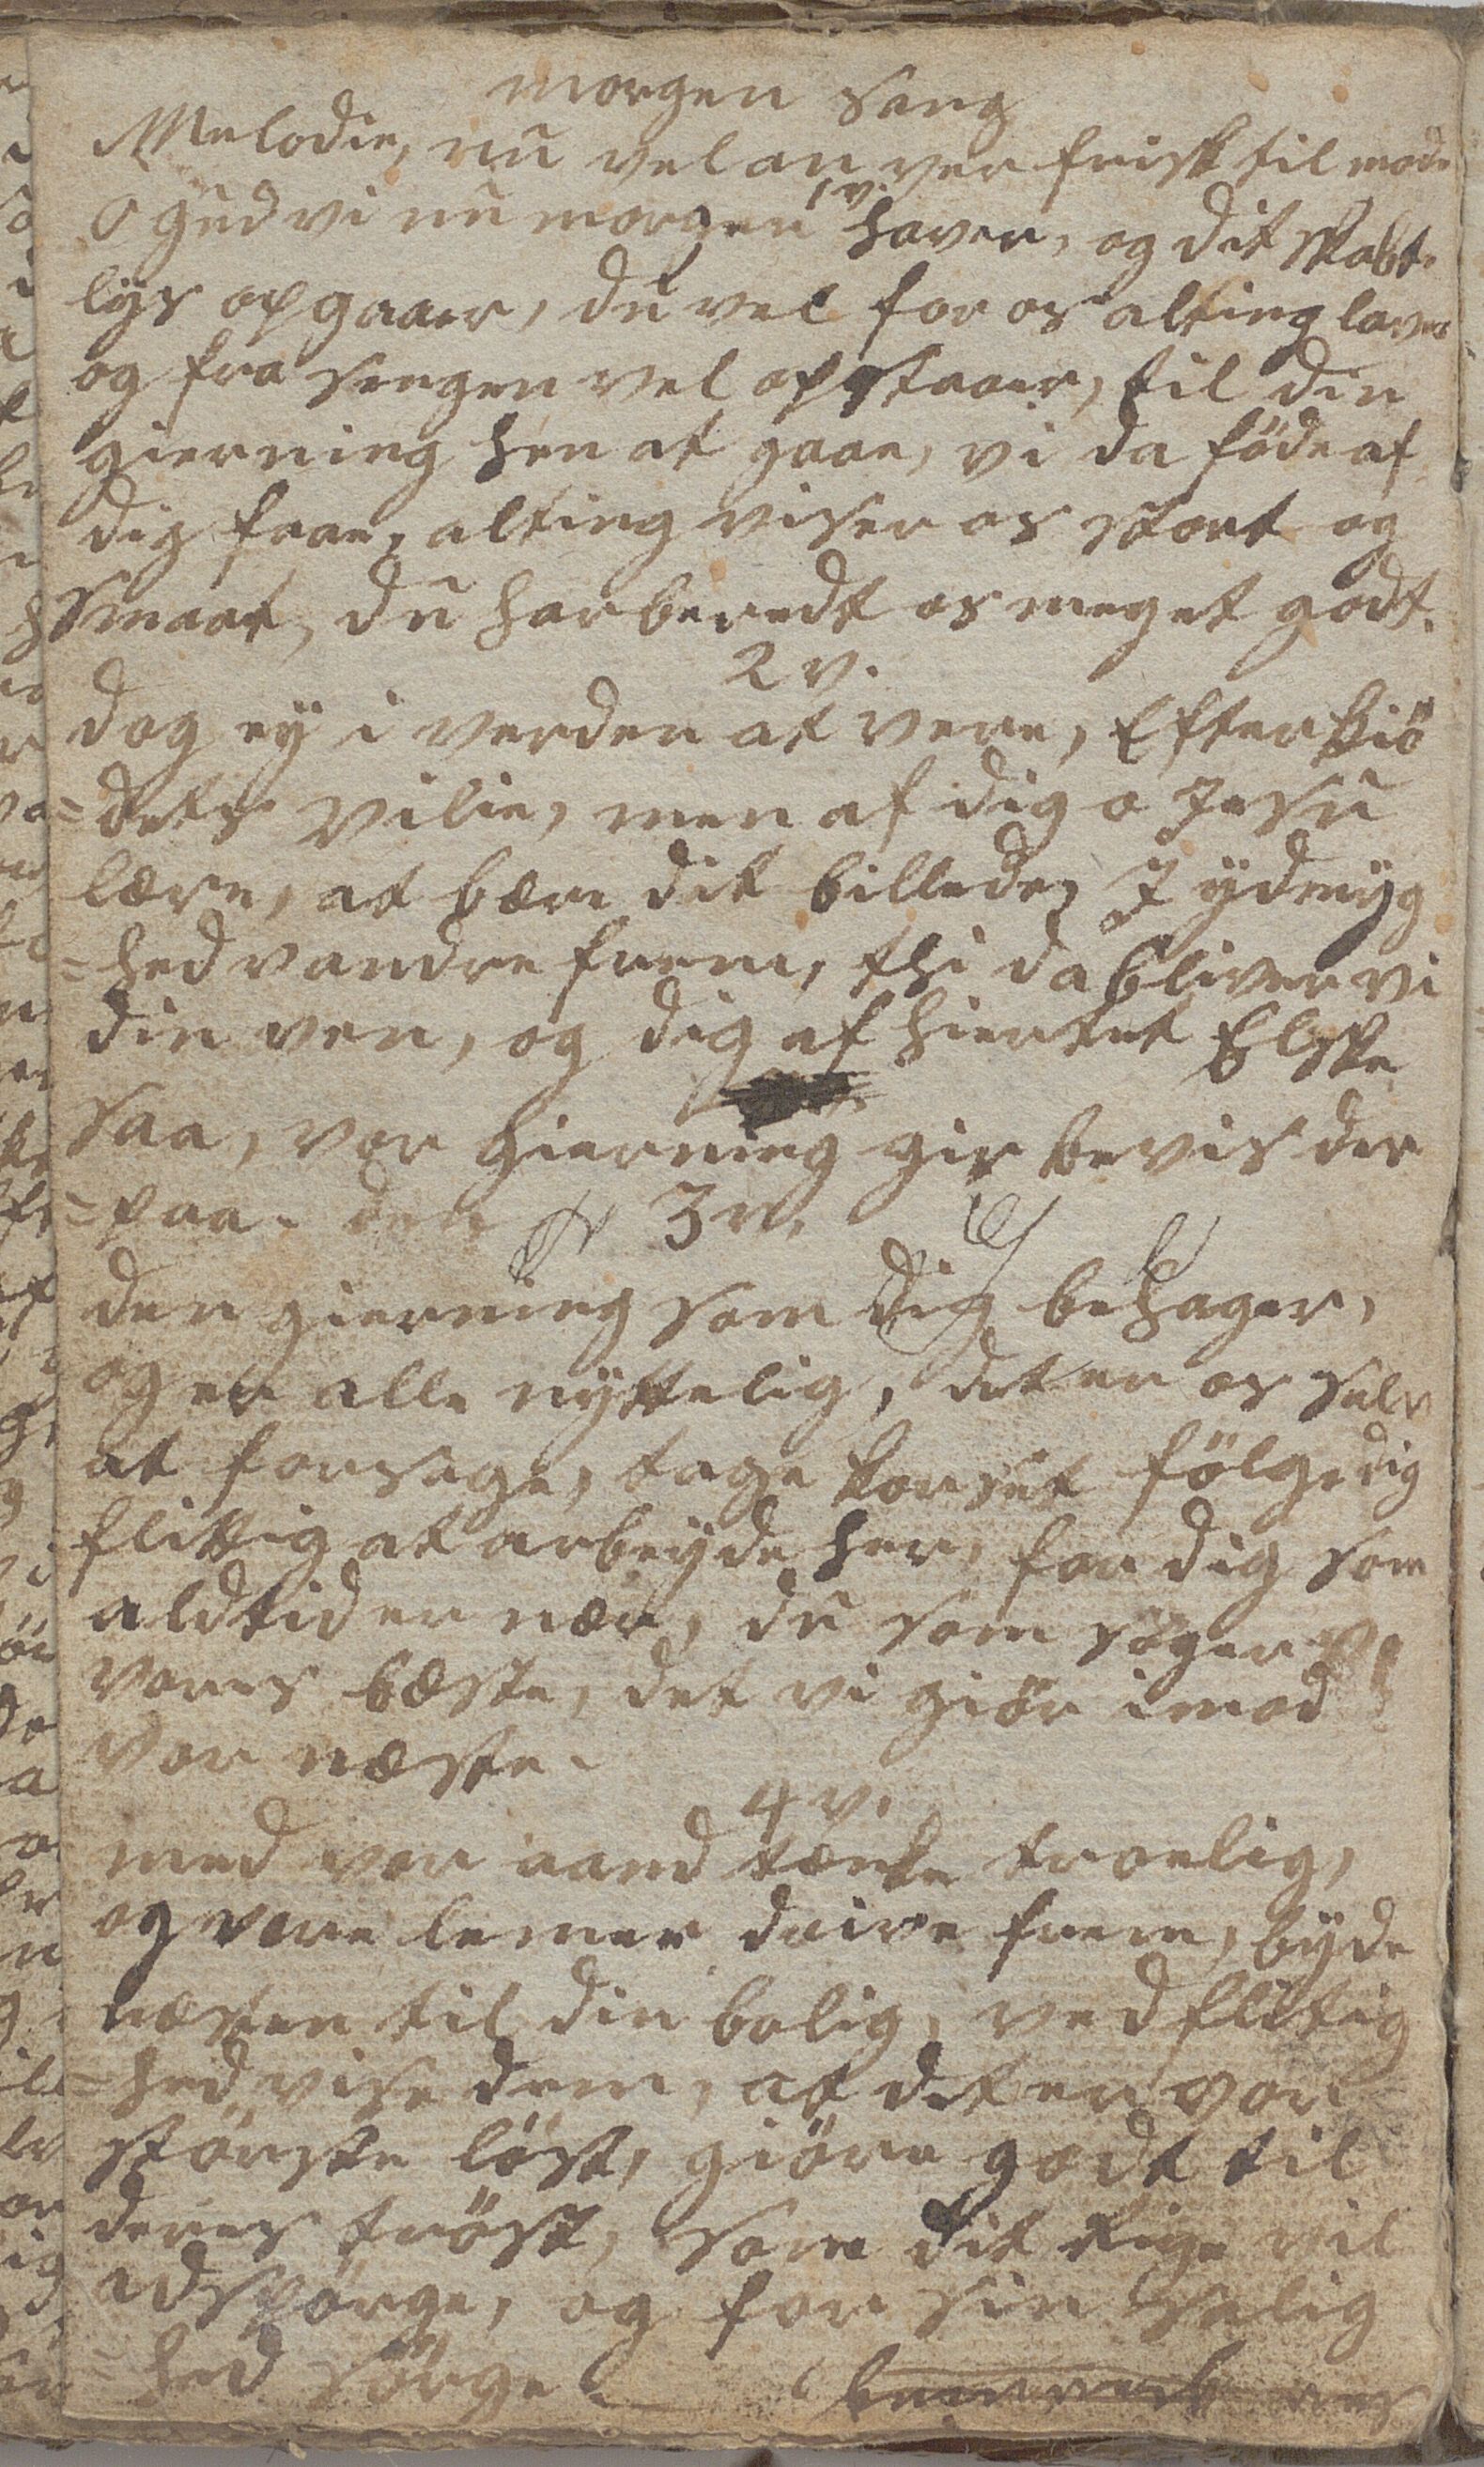 morgen Sang
Melodie, nu vel an ver frisk til mode
1 v.
O gud vi nu morgen haver, og dit skabt
lys opgaaer, du vel for os alting laver
og fra sengen vel opstaaer, til din
gierning hen at gaae, vi da föde af
dig faae, alting viser os stort og
smaat, du har beredt os meget godt.
2 v.
dog ey i verden at vere, Efter kiö
=dets vilie, men af dig o Jesu
lære, at bære dit billede, I ydmyg
=hed vandre frem, thi da bliver vi
din ven, og dig af hiertet Elske
saa, vor gierning gir bevis der
=paa. den 3 v.
den gierning som dig behager,
og er alle nyttelig, det er os selv
at forsage, tage korset fölge dig
flittig at arbeyde her, for dig som
altid er nær, du som söger
vores bæste, det vi giör imod
vor næste.
4 v.
med vor aand tænke troelig,
og vore lemer drive frem, byde
næsten til din bolig, ved flittig
=hed vise dem, at det er vor
störste löst, giöre godt til
deres tröst, som dit Rige vil
adspörge, og for sin salig
=hed sörge.